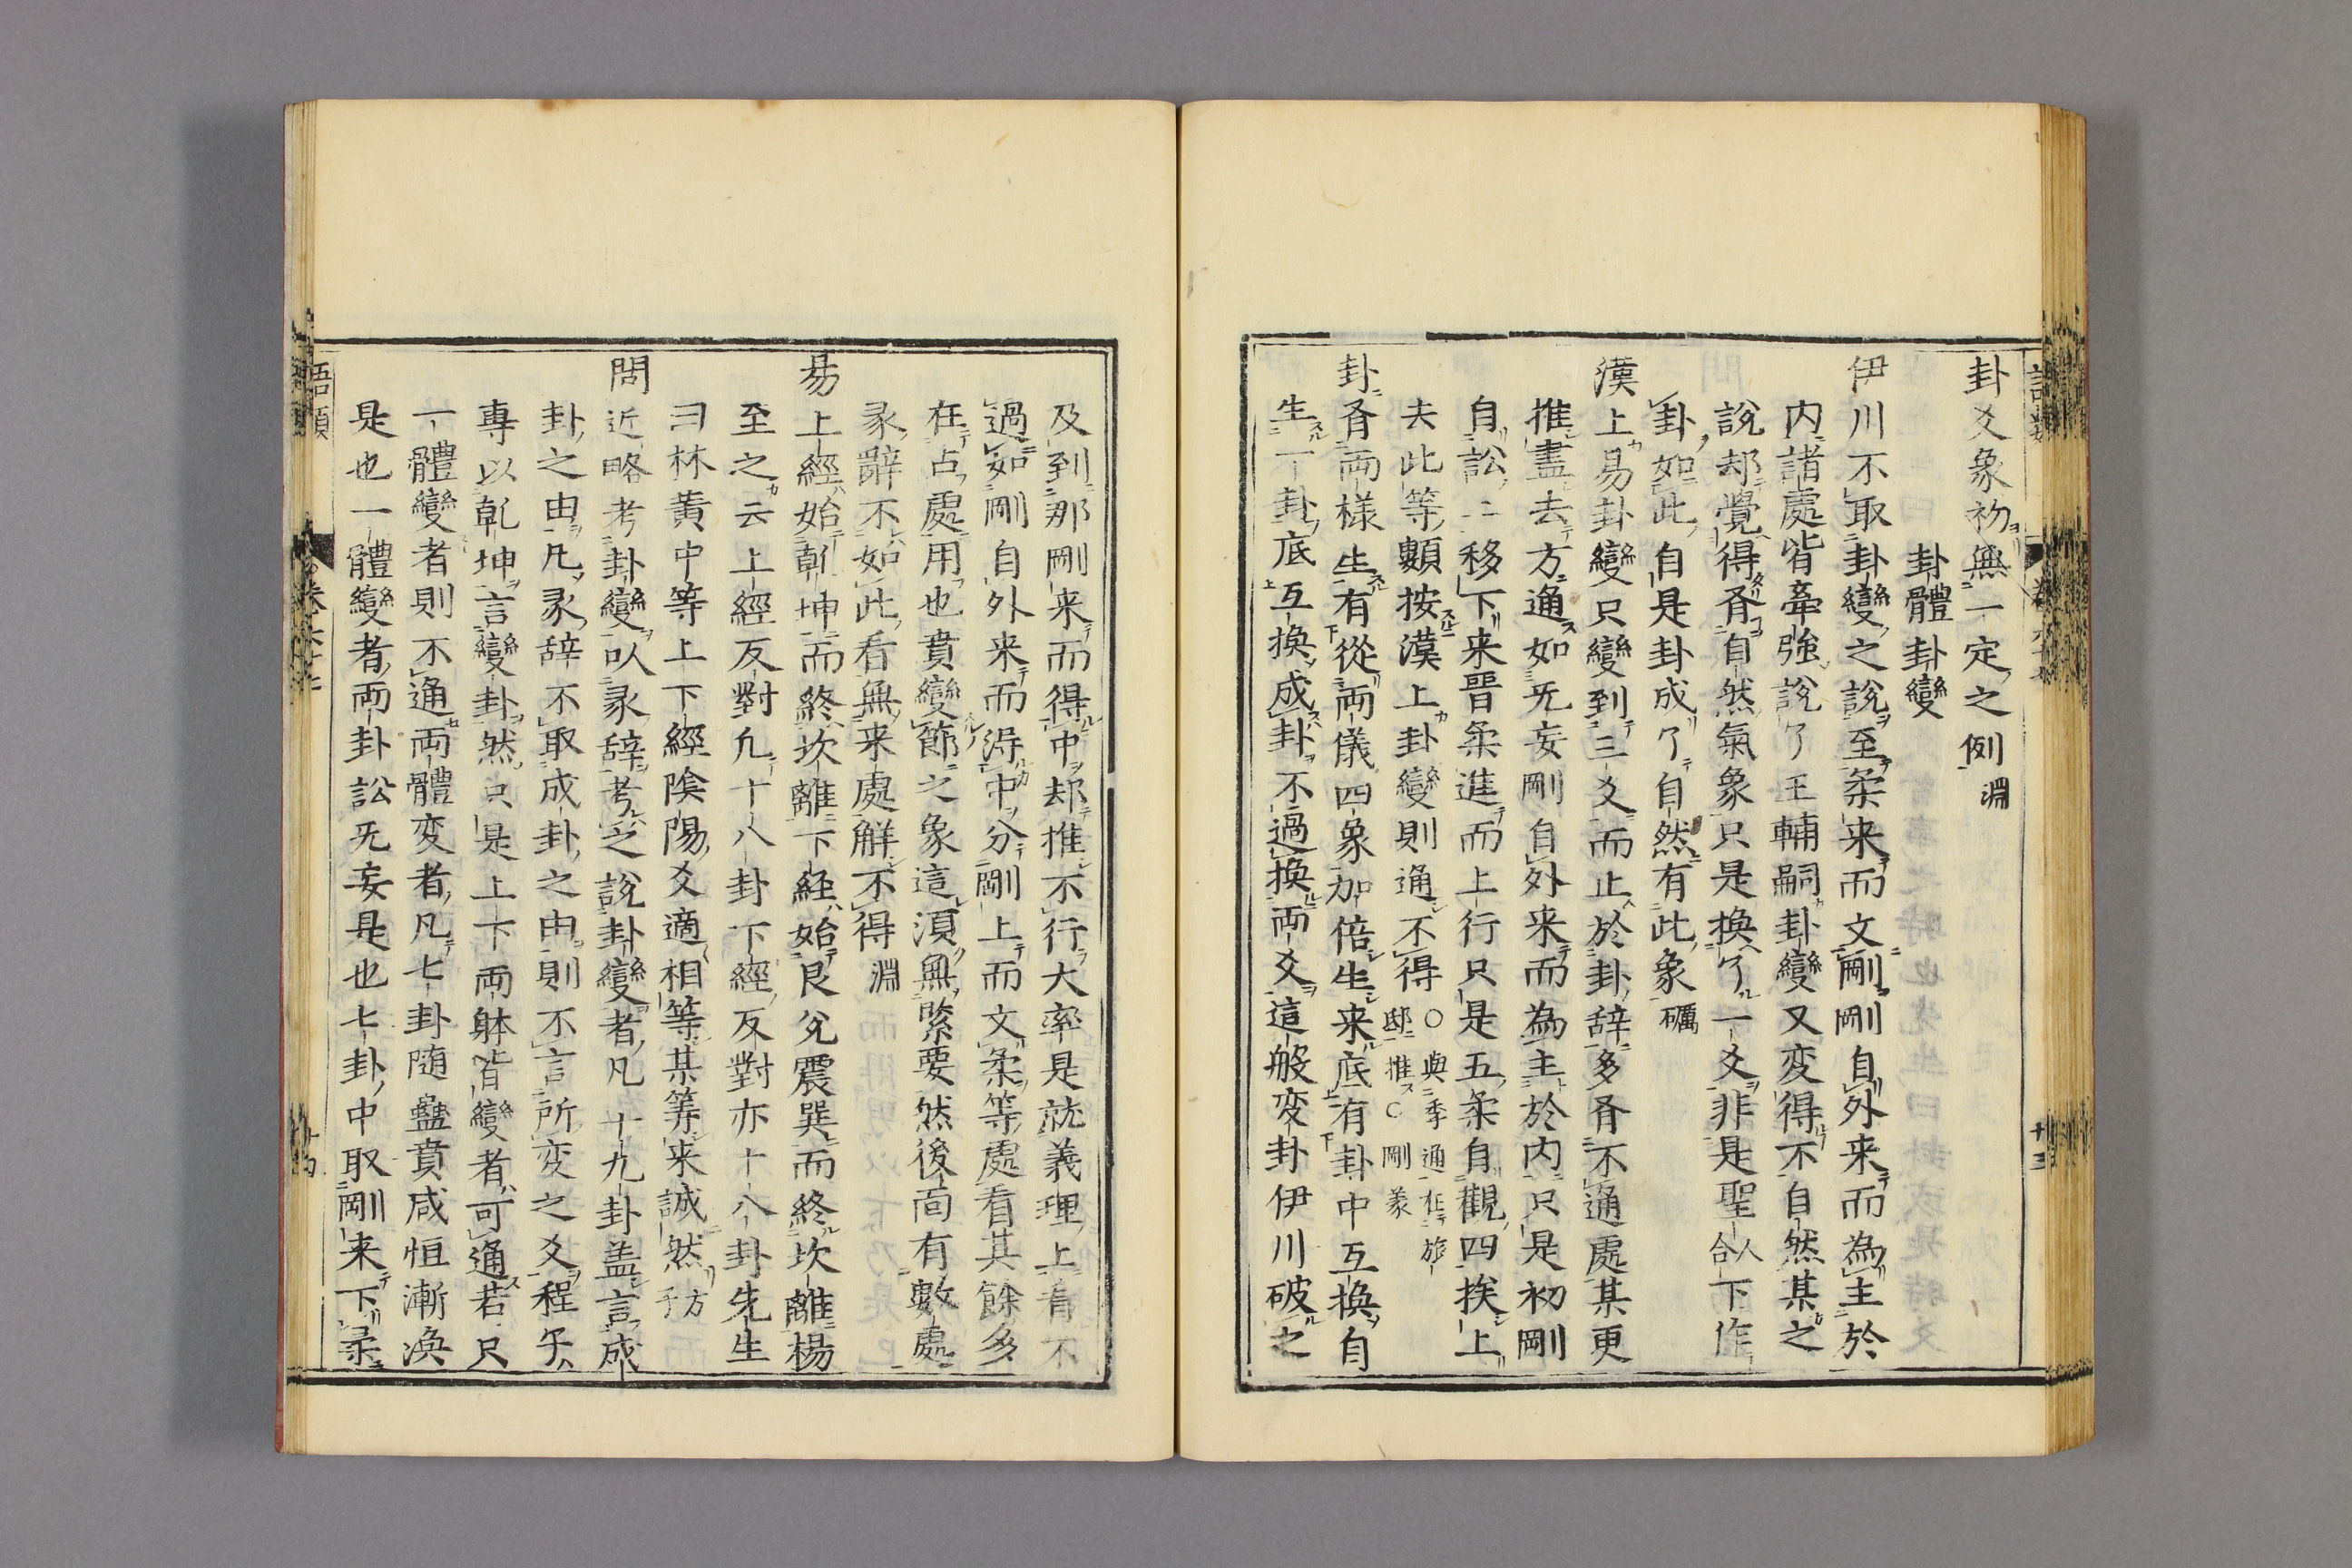 卦爻象初無一定之例淵
卦體卦變
伊川不取卦變之說至柔来而文剛剛自外来而為主於
内諸處皆牽強說了王輔嗣卦變又変得不自然某之
說却覺得有自然氣象只是換了一爻非是聖人合下作
卦如此自是卦成了自然有此象礪
漢上易卦變只變到三爻而止於卦辞多有不通處某更
推盡去方通如无妄剛自外来而為主於内只是初剛
自訟二移下来晋柔進而上行只是五柔自觀四挨上
去此等類按漢上卦變則通不得
卦有両様生有從両儀四象加倍生来底有卦中互換自
生一卦底互換成卦不過換両爻這般変卦伊川破之
及到那剛来而得中却推不行大率是就義理上看不
過如剛自外来而得中分剛上而文柔等處看其餘多
在占處用也賁變節之象這湏無緊要然後面有數處
彖辭不如此看無来處解不得淵
易上經始乾坤而終坎離下経始艮兌震巽而終坎離楊
至之云上經反對凢十八卦下經反對亦十八卦先生
曰林黄中等上下經陰陽爻適相等某筭来誠然方子
問近略考卦變以彖辞考之說卦變者凡十九卦盖言成
卦之由凡彖辞不取成卦之由則不言所変之爻程子
專以乾坤言變卦然只是上下両体皆變者可通若只
一體變者則不通両體変者凡七卦随蠱賁咸恒漸渙
是也一體變者両卦訟无妄是也七卦中取剛来下柔